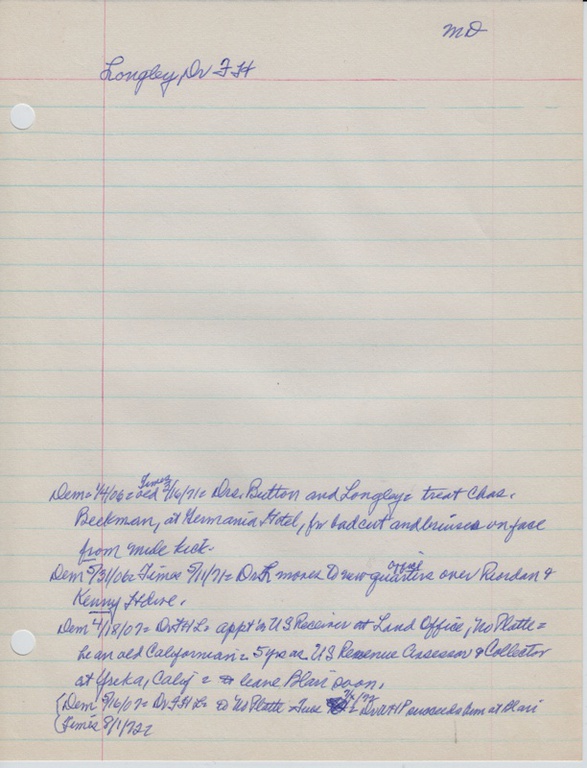 MD
Longley, Dr F H
Dem = 1/4/06 = old Times 3/16/71 = Drs. Button and Longley = treat Chas.
Beekman, at Germania Hotel, for bad cut and bruises on face
from mule kick.
Dem 5/31/06 = Times 5/11/71 = Dr L moves to new office quarters over Riordan &
Kenny Hdwe.
Dem 4/18/07 = Dr F H L = appt'd as US Receiver at Land Office, No Platte =
he an old Californian = 5 yrs as US Revenue Assessor & Collector
at Yreka, Calif = to leave Blair soon.
Dem 5/16/07 = Dr F H L = to No Platte = Dr H P succeeds him at Blair
Times 8/1/72